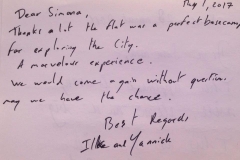 May 1, 2017
Dear Simona,
Thanks a lot the flat was a perfect basecamp
for exploring the City.
A marvelous experience.
We would come again without question
may we have the chance.
Best Regards
Ilke and Yannick